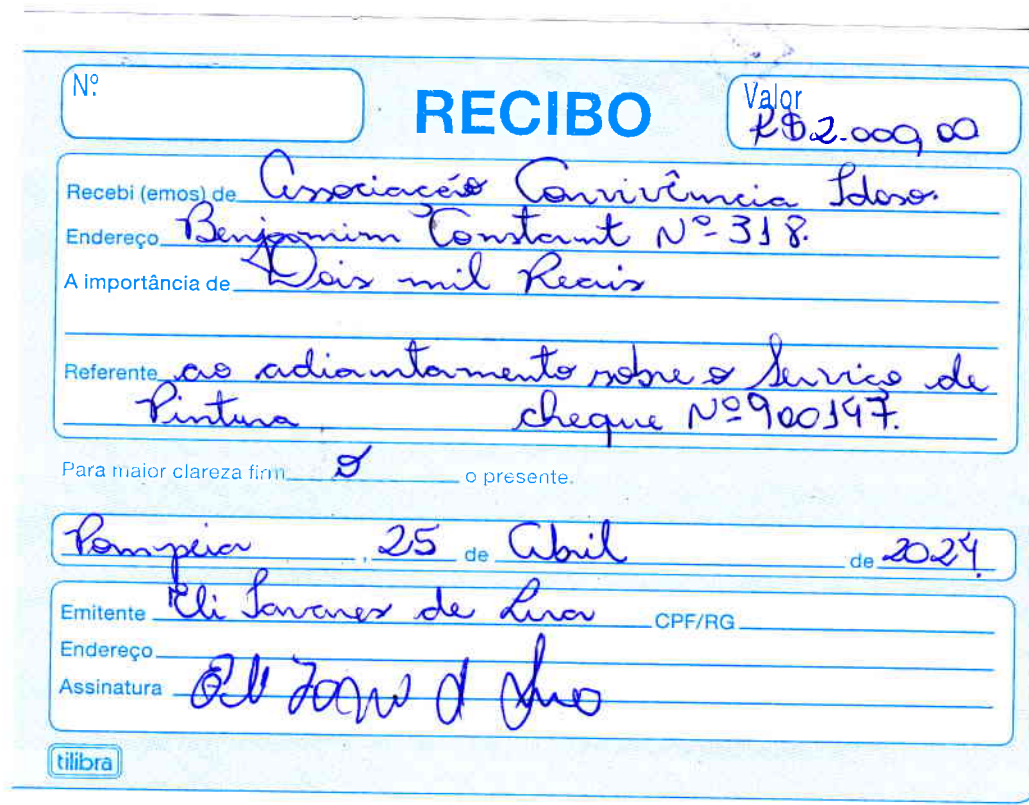 Nº
RECIBO
Valor
R$ 2.000,00
Recebi (emos) de Associação Convivência Idoso.
Endereço Benjamim Constant Nº 318.
A importância de Dois mil Reais
Referente ao adiantamento sobre o Serviço de
Pintura cheque Nº 900147.
Para maior clareza firm o o presente.
Pompeia, 25 de Abril de 2024
Emitente Eli Tavares de Lira CPF/RG
Endereço
Assinatura
tilibra